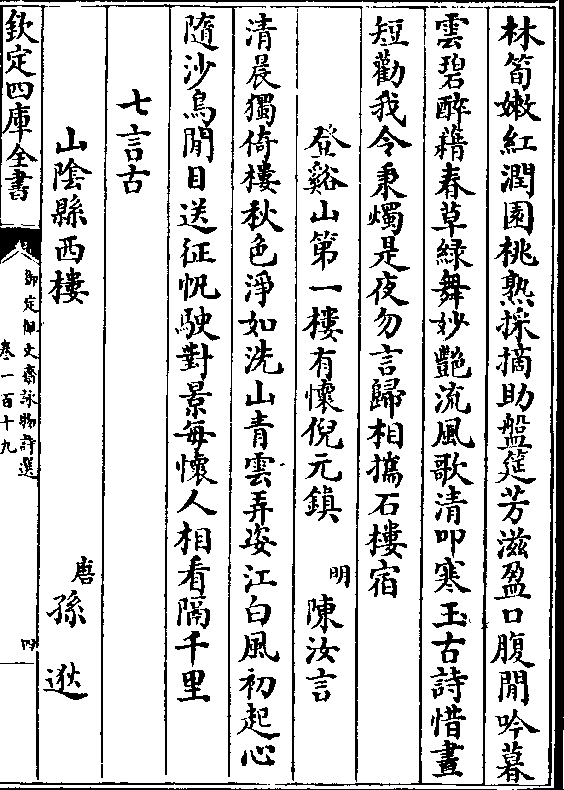 林筍嫩紅潤園桃熟採摘助盤筵芳滋盈口腹閒吟暮
雲碧醉藉春草綠舞妙艷流風歌清叩寒玉古詩惜晝
短勸我令秉燭是夜勿言歸相攜石樓宿
登谿山第一樓有懷倪元鎮 明 陳汝言
清晨獨倚樓秋色淨如洗山青雲弄姿江白風初起心
隨沙鳥閒目送征帆駛對景每懷人相看隔千里
七言古
山陰縣西樓 唐 孫逖
欽定四庫全書
御定佩文齋詠物詩選
卷一百十九
四